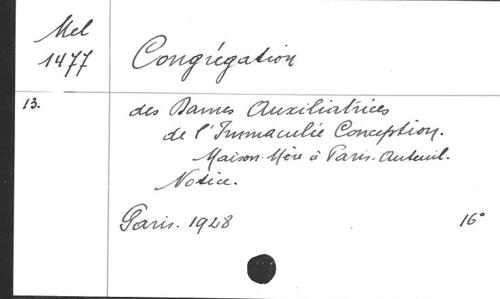 Mel
1477
Congrégation
13.
des Dames Auxiliatrices
de l'Immaculée Conception.
Maison-Mère à Paris-Auteuil.
Notice.
Paris. 1928
16°